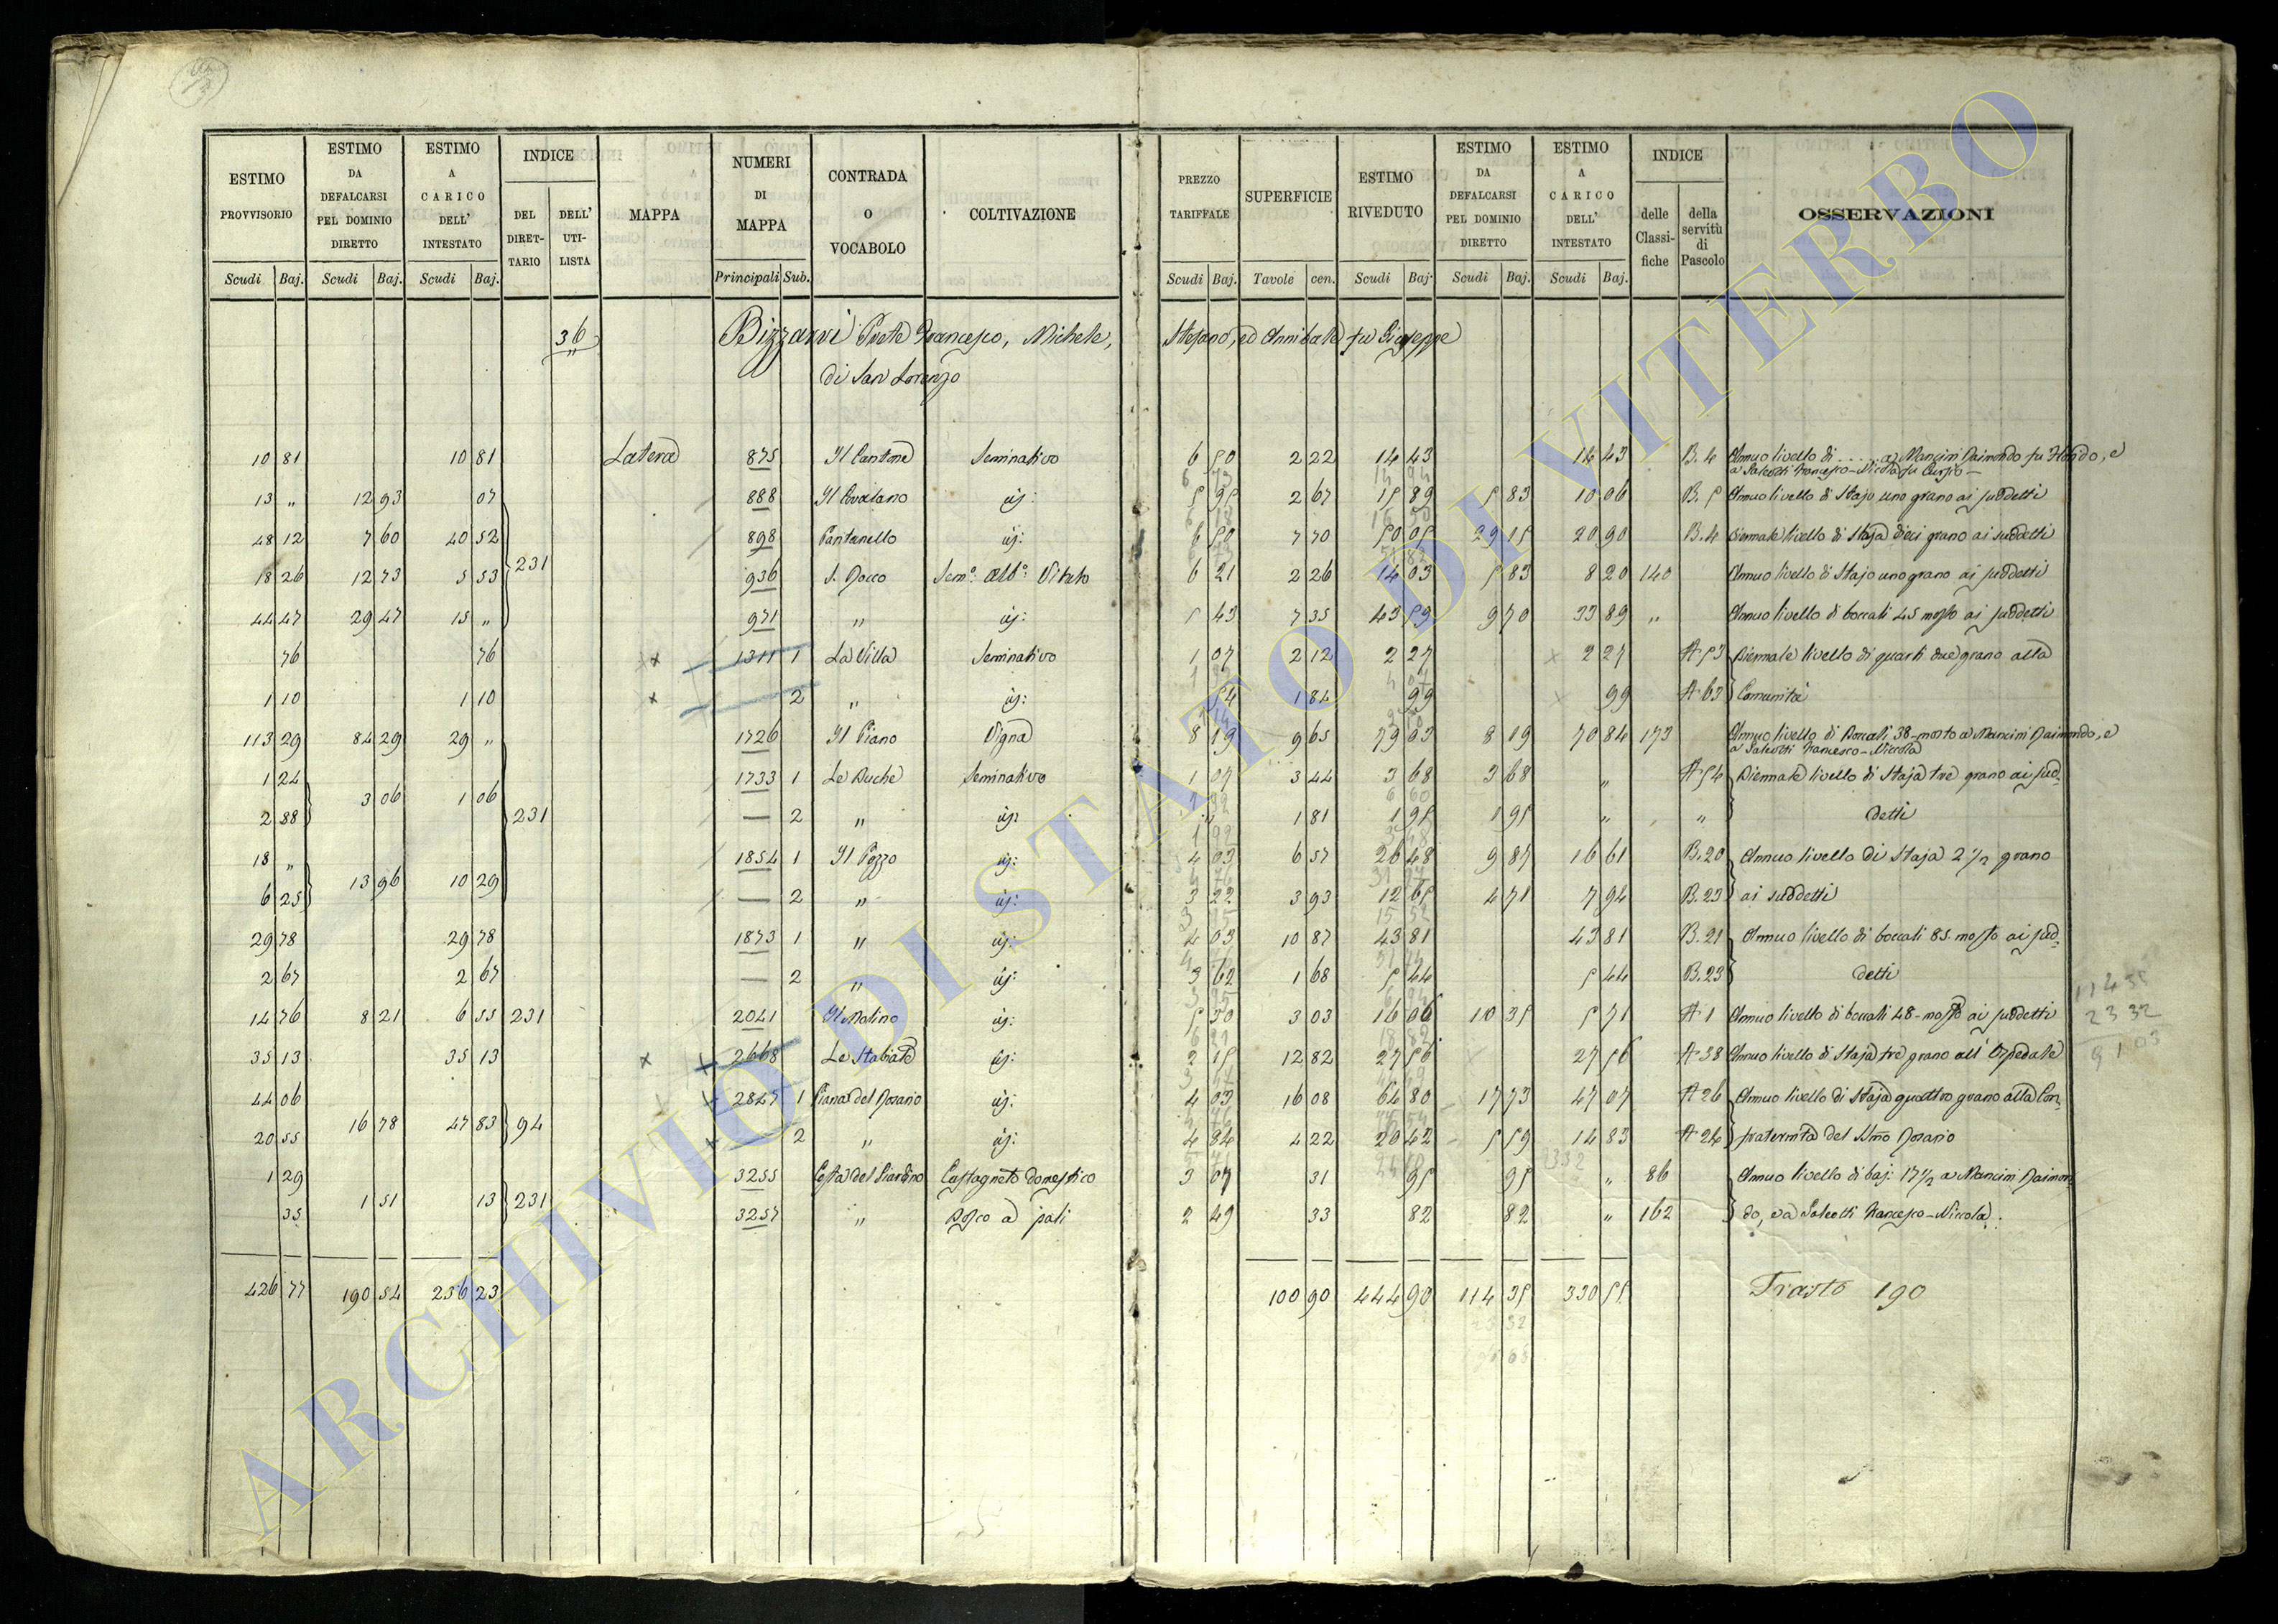 ESTIMO PROVVISORIO | ESTIMO DA DEFALCARSI PEL DOMINIO DIRETTO | ESTIMO A CARICO DELL' INTESTATO | INDICE DEL DIRETTARIO | DELL' UTILISTA | MAPPA | NUMERI DI MAPPA | CONTRADA O VOCABOLO | COLTIVAZIONE | PREZZO TARIFFALE | SUPERFICIE | ESTIMO RIVEDUTO | ESTIMO DA DEFALCARSI PEL DOMINIO DIRETTO | ESTIMO A CARICO DELL' INTESTATO | INDICE delle Classifiche | della servitù di Pascolo | OSSERVAZIONI
Scudi Baj. | Scudi Baj. | Scudi Baj. | Principali Sub. | Scudi Baj. | Tavole cen. | Scudi Baj. | Scudi Baj. | Scudi Baj.
36 Bizzarri Prete Francesco, Michele, Stefano, ed Annibale fu Giuseppe
di San Lorenzo
10 81 | 10 81 | Latera | 875 | Il Cantone | Seminativo | 6 50 | 2 22 | 14 43 | 14 43 | B. 4 | Annuo livello di ..... a Mancini Raimondo fu
a Francesco - Nicola fu
13 " | 12 93 | 07 | 888 | Il | id: | 5 95 | 2 67 | 15 89 | 5 83 | 10 06 | B. 5 | Annuo livello di Stajo uno grano ai suddetti
48 12 | 7 60 | 40 52 | 898 | Pantanello | id: | 6 50 | 7 70 | 50 05 | 29 15 | 20 90 | B. 4 | Biennale livello di Staja dieci grano ai suddetti
18 26 | 12 73 | 5 53 | 231 | 936 | S. Rocco | Sem.º Alb.º Vitato | 6 21 | 2 26 | 14 03 | 5 83 | 8 20 | 140 | Annuo livello di Stajo uno grano ai suddetti
44 47 | 29 47 | 15 " | 971 | " | id: | 5 43 | 7 35 | 43 59 | 9 70 | 33 89 | " | Annuo livello di boccali 45 mosto ai suddetti
76 | 76 | x | 1311 1 | La Villa | Seminativo | 1 07 | 2 12 | 2 27 | x 2 27 | A 53 | Biennale livello di quarti due grano alla
1 10 | 1 10 | x | 2 | " | id: | 54 | 1 84 | 99 | x 99 | A 63 | Comunità
113 29 | 84 29 | 29 " | 1726 | Il Piano | Vigna | 8 19 | 9 65 | 79 03 | 8 19 | 70 84 | 173 | Annuo livello di Boccali 38 mosto a Mancini Raimondo, e
a Francesco - Niccola
1 24 | 1733 1 | Le Buche | Seminativo | 1 07 | 3 44 | 3 68 | 3 68 | " | A 54 | Biennale livello di Staja tre grano ai sud-
3 06 | 1 06
2 88 | 231 | — 2 | " | id: | " | 1 81 | 1 95 | 1 95 | " | " | detti
18 " | 1854 1 | Il Pozzo | id: | 4 03 | 6 57 | 26 48 | 9 87 | 16 61 | B. 20 | Annuo livello di Staja 2 1/2 grano
13 96 | 10 29
6 25 | — 2 | " | id: | 3 22 | 3 93 | 12 65 | 4 71 | 7 94 | B. 23 | ai suddetti
29 78 | 29 78 | 1873 1 | " | id: | 4 03 | 10 87 | 43 81 | 43 81 | B. 21 | Annuo livello di boccali 85 mosto ai sud-
2 67 | 2 67 | — 2 | " | id: | 3 62 | 1 68 | 5 44 | 5 44 | B. 23 | detti
14 76 | 8 21 | 6 55 | 231 | 2041 | Il Molino | id: | 5 30 | 3 03 | 16 06 | 10 35 | 5 71 | A 1 | Annuo livello di boccali 48 mosto ai suddetti
35 13 | 35 13 | x | 2668 | Le | id: | 2 15 | 12 82 | 27 56 | 27 56 | A 38 | Annuo livello di Staja tre grano all' Ospedale
44 06 | 2847 1 | Piana del Rosario | id: | 4 03 | 16 08 | 64 80 | 17 73 | 47 07 | A 26 | Annuo livello di Staja quattro grano alla Con-
16 78 | 47 83 | 94
20 55 | 2 | " | id: | 4 84 | 4 22 | 20 42 | 5 59 | 14 83 | A 24 | fraternita del SSmo Rosario
1 29 | 3255 | Costa del Giardino | Castagneto domestico | 3 07 | 31 | 95 | 95 | " | 86 | Annuo livello di baj: 17 1/2 a Mancini Raimon-
1 51 | 13 | 231
35 | 3257 | " | Bosco a pali | 2 49 | 33 | 82 | 82 | " | 162 | do, ed a Francesco - Niccola.
426 77 | 190 54 | 236 23 | 100 90 | 444 90 | 114 35 | 330 55 | Trasto 190
114 35
23 32
91 03
ARCHIVIO DI STATO DI VITERBO